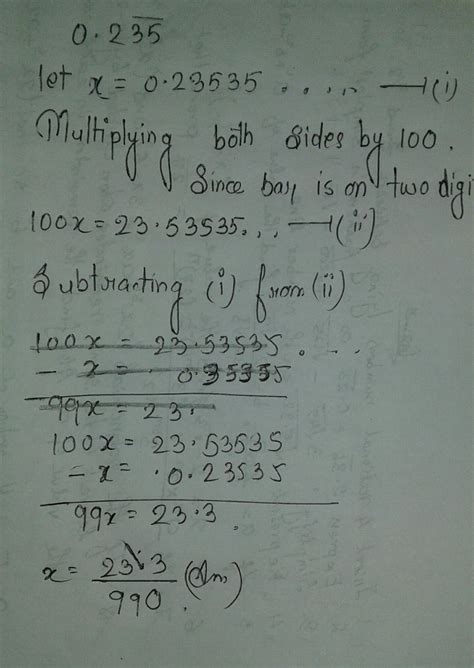 0.235̅5̅
let x = 0.23535 ..... —(i)
Multiplying both sides by 100.
Since bar is on two digi
100x = 23.53535... —(ii)
Subtracting (i) from (ii)
100x = 23.53535. ...
- x = 0.35355
99x = 23.
100x = 23.53535
- x = .0.23535
99x = 23.3
x = 233/990 (Ans)